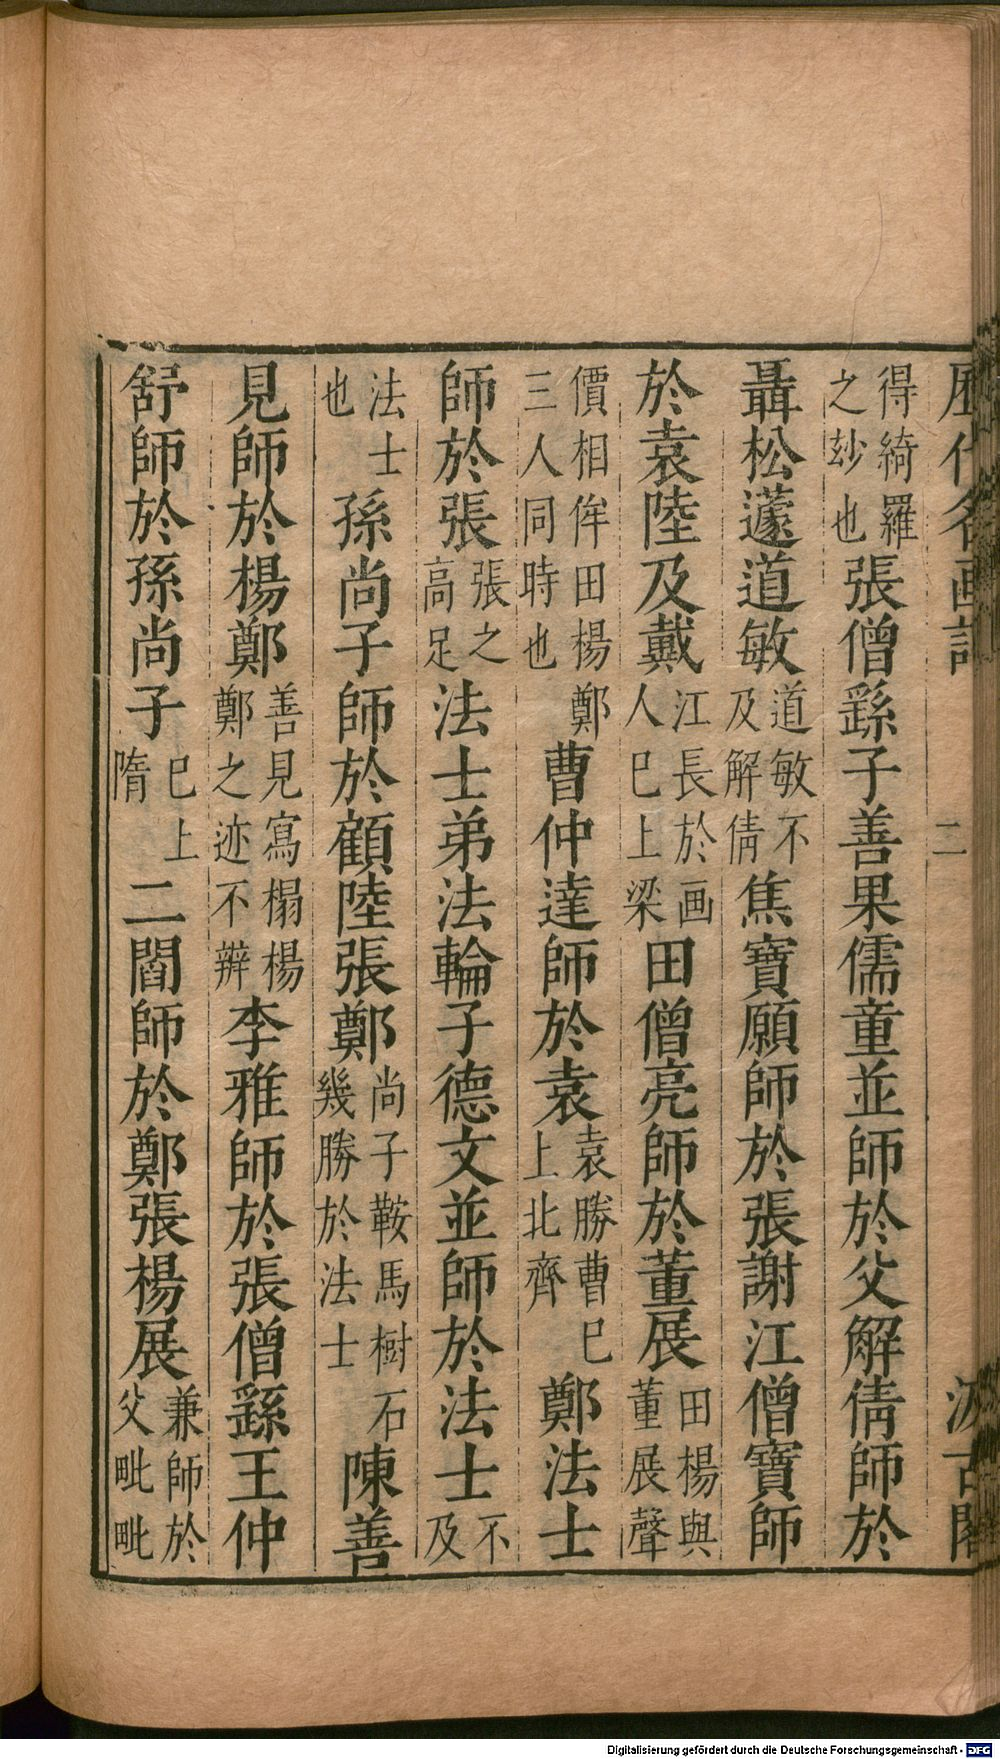 歷代名画記 二 汲古閣
得綺羅之玅也張僧繇子善果儒童並師於父解倩師於
聶松蘧道敏道敏不及解倩焦寶願師於張謝江僧寶師
於袁陸及戴江長於画人巳上梁田僧亮師於董展田楊與董展聲
價相侔田楊鄭三人同時也曹仲達師於袁袁勝曹巳上北齊鄭法士
師於張張之高足法士弟法輪子德文並師於法士不及
法士也孫尚子師於顧陸張鄭尚子鞍馬樹石幾勝於法士陳善
見師於楊鄭善見寫榻楊鄭之迹不辨李雅師於張僧繇王仲
舒師於孫尚子巳上隋二閻師於鄭張楊展兼師於父毗毗
Digitalisierung gefördert durch die Deutsche Forschungsgemeinschaft - DFG